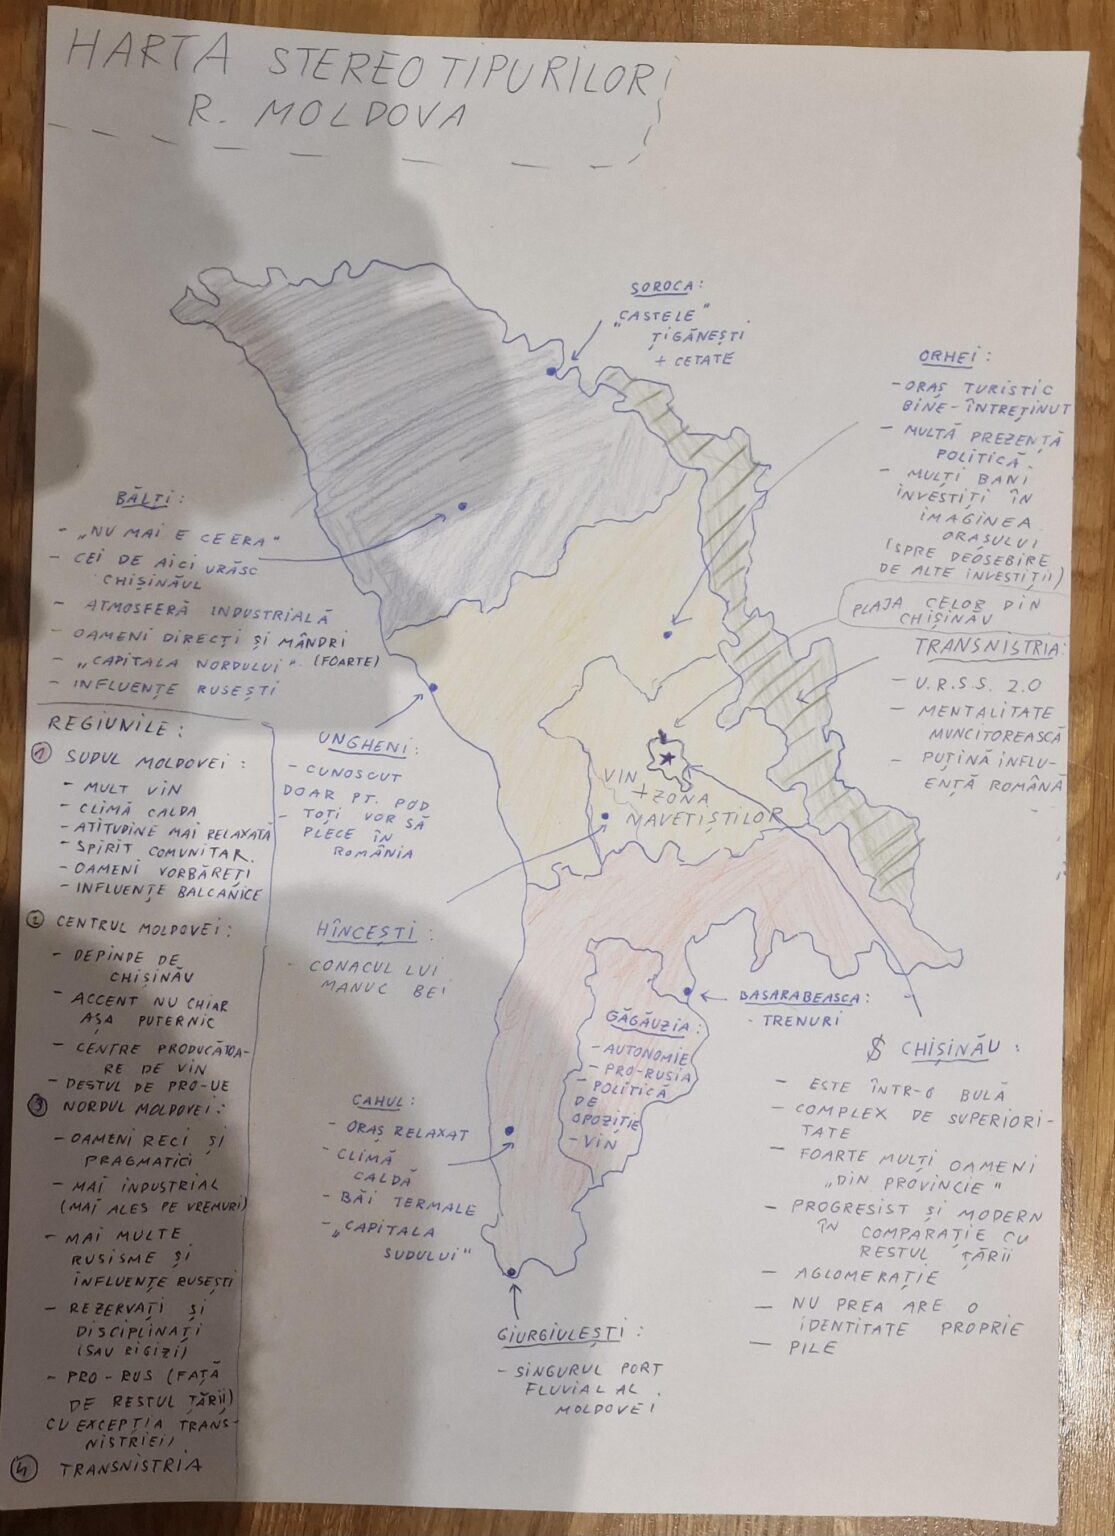 HARTA STEREOTIPURILOR
R. MOLDOVA
SOROCA:
„CASTELE"
ȚIGĂNEȘTI
+ CETATE
ORHEI:
- ORAȘ TURISTIC
BINE-ÎNTREȚINUT
- MULTĂ PREZENȚĂ
POLITICĂ.
- MULȚI BANI
INVESTIȚI ÎN
IMAGINEA
ORAȘULUI
(SPRE DEOSEBIRE
DE ALTE INVESTIȚII)
PLAJA CELOR DIN
CHIȘINĂU
TRANSNISTRIA:
- U.R.S.S. 2.0
- MENTALITATE
MUNCITOREASCĂ
- PUȚINĂ INFLU-
ENȚĂ ROMÂNĂ
BĂLȚI:
- „NU MAI E CE ERA"
- CEI DE AICI URĂSC
CHIȘINĂUL
- ATMOSFERĂ INDUSTRIALĂ
- OAMENI DIRECȚI ȘI MÂNDRI
- „CAPITALA NORDULUI". (FOARTE)
- INFLUENȚE RUSEȘTI
UNGHENI:
- CUNOSCUT
DOAR PT. POD
- TOȚI VOR SĂ
PLECE ÎN
ROMÂNIA
VIN
+ ZONA
NAVETIȘTILOR
HÎNCEȘTI:
- CONACUL LUI
MANUC BEI
BASARABEASCA:
- TRENURI
GĂGĂUZIA:
- AUTONOMIE
- PRO-RUSIA
- POLITICĂ
DE
OPOZIȚIE
- VIN
CAHUL:
- ORAȘ RELAXAT
- CLIMĂ
CALDĂ
- BĂI TERMALE
- „CAPITALA
SUDULUI"
GIURGIULEȘTI:
- SINGURUL PORT
FLUVIAL AL
MOLDOVEI
$ CHIȘINĂU:
- ESTE ÎNTR-O BULĂ
- COMPLEX DE SUPERIORI-
TATE
- FOARTE MULȚI OAMENI
„DIN PROVINCIE"
- PROGRESIST ȘI MODERN
ÎN COMPARAȚIE CU
RESTUL ȚĂRII
- AGLOMERAȚIE
- NU PREA ARE O
IDENTITATE PROPRIE
- PILE
REGIUNILE:
1 SUDUL MOLDOVEI:
- MULT VIN
- CLIMĂ CALDA
- ATITUDINE MAI RELAXATĂ
- SPIRIT COMUNITAR.
- OAMENI VORBĂREȚI
- INFLUENȚE BALCANICE
2 CENTRUL MOLDOVEI:
- DEPINDE DE
CHIȘINĂU
- ACCENT NU CHIAR
AȘA PUTERNIC
- CENTRE PRODUCĂTOA-
RE DE VIN
- DESTUL DE PRO-UE
3 NORDUL MOLDOVEI:
- OAMENI RECI ȘI
PRAGMATICI
- MAI INDUSTRIAL
(MAI ALES PE VREMURI)
- MAI MULTE
RUSISME ȘI
INFLUENȚE RUSEȘTI
- REZERVAȚI ȘI
DISCIPLINAȚI
(SAU RIGIZI)
- PRO-RUS (FAȚĂ
DE RESTUL ȚĂRII)
CU EXCEPȚIA TRANS-
NISTRIEI)
4 TRANSNISTRIA